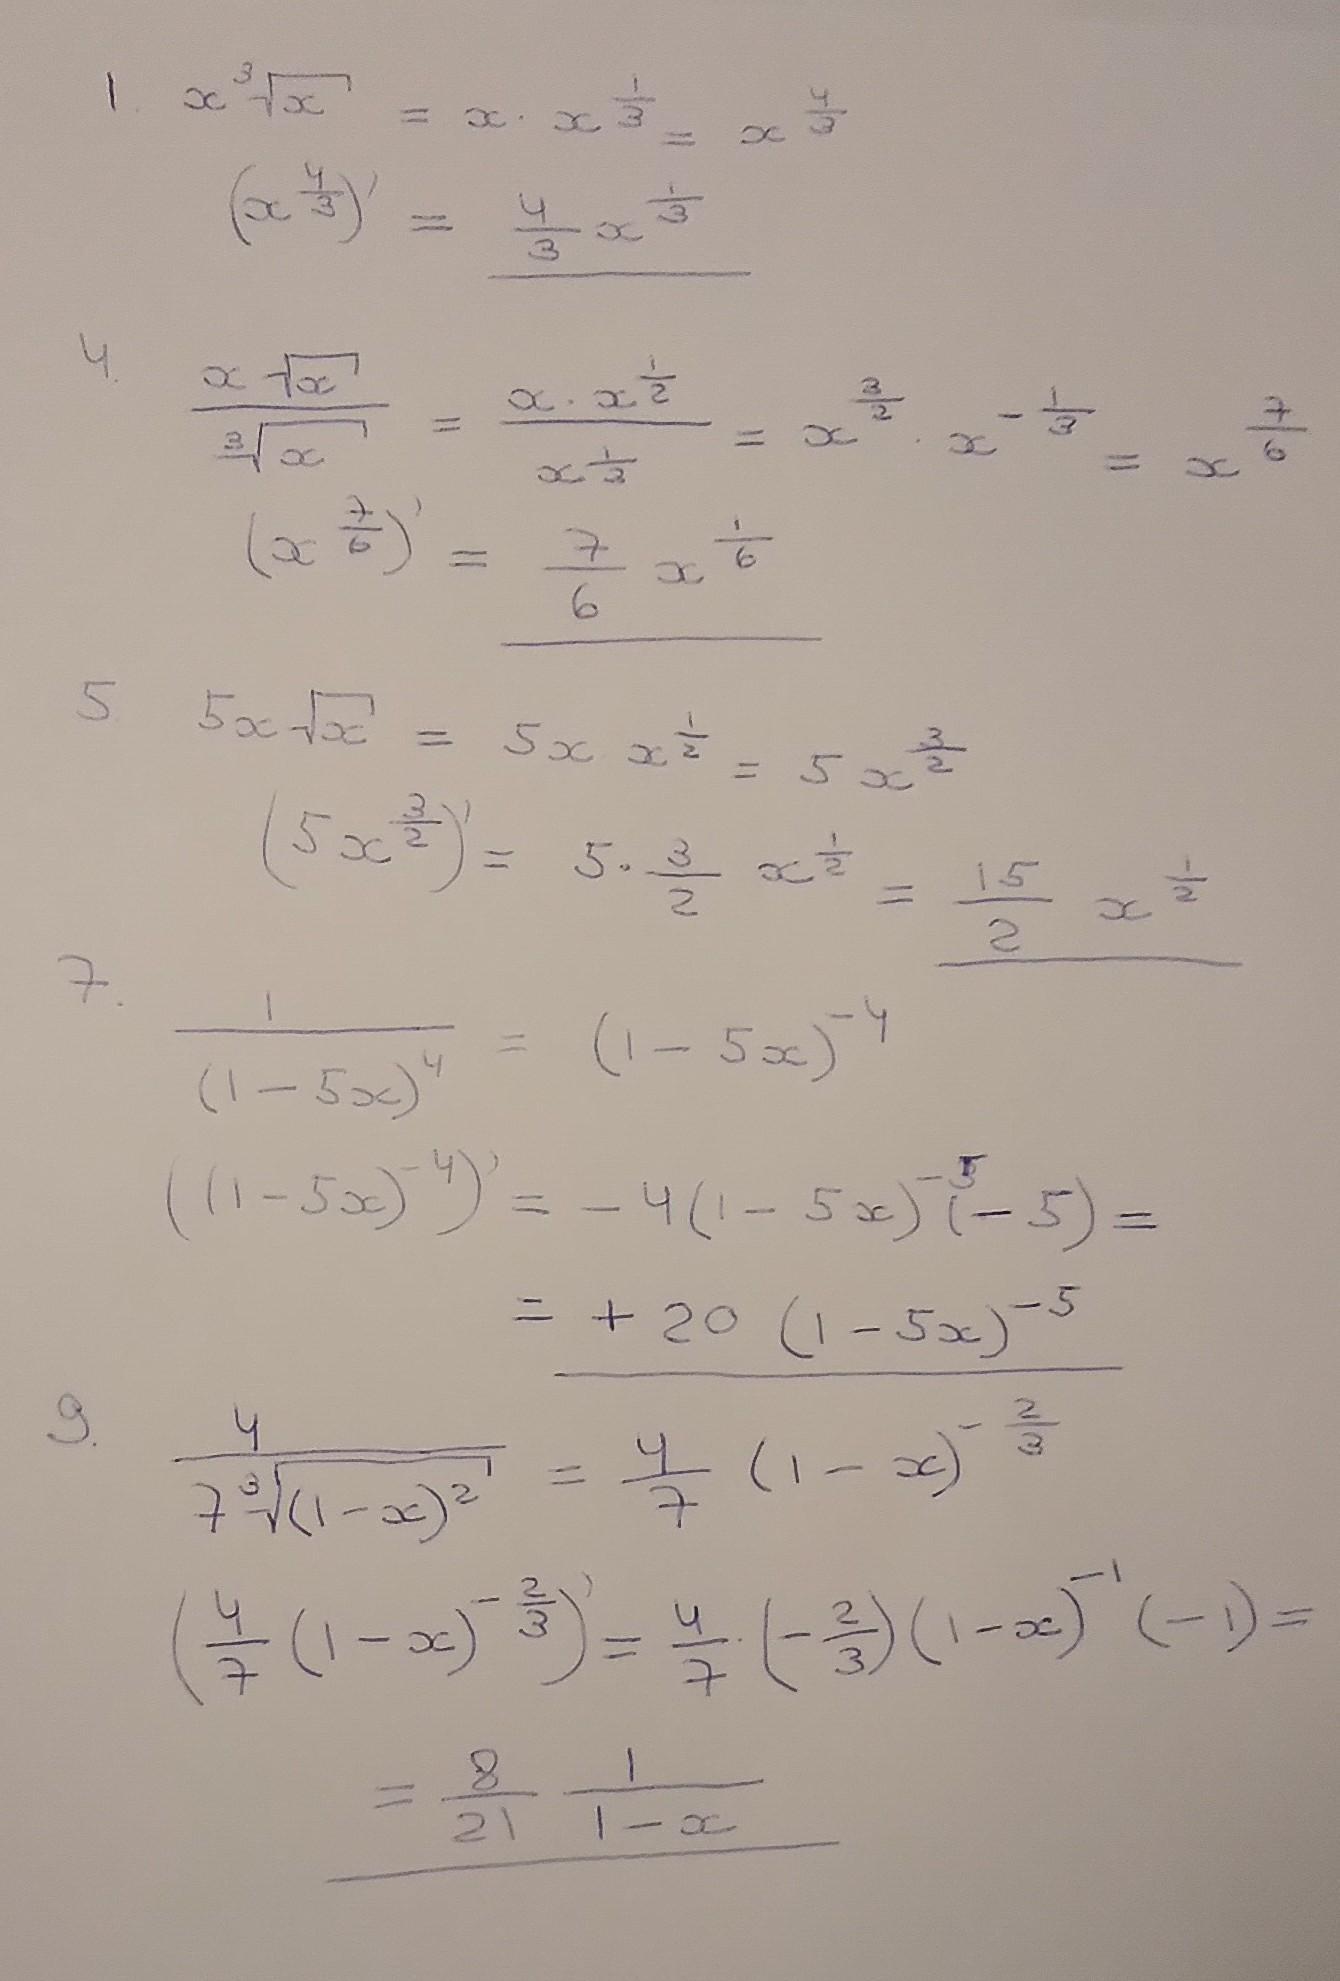 1. x∛x = x · x^(1/3) = x^(4/3)
(x^(4/3))' = 4/3 x^(1/3)
4. x√x / ∛x = x · x^(1/2) / x^(1/3) = x^(3/2) · x^(-1/3) = x^(7/6)
(x^(7/6))' = 7/6 x^(1/6)
5. 5x√x = 5x x^(1/2) = 5x^(3/2)
(5x^(3/2))' = 5 · 3/2 x^(1/2) = 15/2 x^(1/2)
7. 1/(1-5x)^4 = (1-5x)^(-4)
((1-5x)^(-4))' = -4(1-5x)^(-5) (-5) =
= +20 (1-5x)^(-5)
9. 4/(7∛((1-x)^2)) = 4/7 (1-x)^(-2/3)
(4/7 (1-x)^(-2/3))' = 4/7 · (-2/3)(1-x)^(-1) (-1) =
= 8/21 1/(1-x)